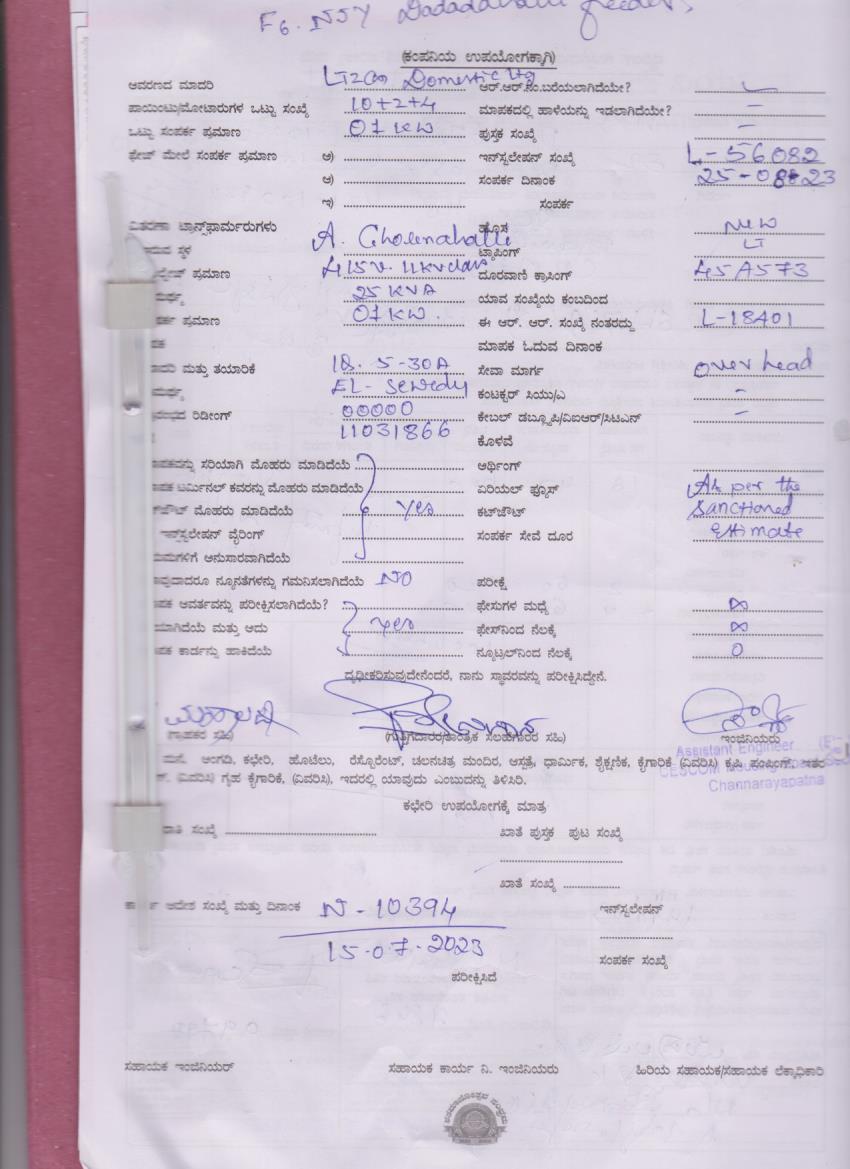 F6. NJY Dadadahalli feeder,
(ಕಂಪನಿಯ ಉಪಯೋಗಕ್ಕಾಗಿ)
ಆವರಣದ ಮಾದರಿ LT2(a) Domestic ltg ಆರ್.ಆರ್.ನಂ.ಬರೆಯಲಾಗಿದೆಯೇ?
ಪಾಯಿಂಟು/ಮೋಟಾರುಗಳ ಒಟ್ಟು ಸಂಖ್ಯೆ 10+2+4 ಮಾಪಕದಲ್ಲಿ ಹಾಳೆಯನ್ನು ಇಡಲಾಗಿದೆಯೇ? –
ಒಟ್ಟು ಸಂಪರ್ಕ ಪ್ರಮಾಣ 01 KW ಪುಸ್ತಕ ಸಂಖ್ಯೆ –
ಫೇಜ್ ಮೇಲೆ ಸಂಪರ್ಕ ಪ್ರಮಾಣ ಅ) ಇನ್‌ಸ್ಟಲೇಷನ್ ಸಂಖ್ಯೆ L-56082
ಆ) ಸಂಪರ್ಕ ದಿನಾಂಕ 25-08-23
ಇ) ಸಂಪರ್ಕ
ವಿತರಣಾ ಟ್ರಾನ್ಸ್‌ಫಾರ್ಮರುಗಳು ಹೊಸ NEW
ಸ್ಥಳ A. Cholenahalli ಟ್ಯಾಪಿಂಗ್ LT
ಪ್ರಮಾಣ 415V. 11KV class ದೂರವಾಣಿ ಕ್ರಾಸಿಂಗ್ 45A573
25 KVA ಯಾವ ಸಂಖ್ಯೆಯ ಕಂಬದಿಂದ
ಪ್ರಮಾಣ 01 KW. ಈ ಆರ್. ಆರ್. ಸಂಖ್ಯೆ ನಂತರದ್ದು L-18401
ಮಾಪಕ ಓದುವ ದಿನಾಂಕ
ಮತ್ತು ತಯಾರಿಕೆ 1Φ. 5-30A ಸೇವಾ ಮಾರ್ಗ over head
EL- Sewedy ಕಂಟಕ್ಟರ್ ಸಿಯು/ಎ –
ರಿಡೀಂಗ್ 00000 ಕೇಬಲ್ ಡಬ್ಲ್ಯೂಪಿ/ವಿಐಆರ್/ಸಿಟಿಎನ್ –
11031866 ಕೊಳವೆ
ಸರಿಯಾಗಿ ಮೊಹರು ಮಾಡಿದೆಯೆ ಆರ್ಥಿಂಗ್
ಟರ್ಮಿನಲ್ ಕವರನ್ನು ಮೊಹರು ಮಾಡಿದೆಯೆ ಏರಿಯಲ್ ಫ್ಯೂಸ್ As per the
ಮೊಹರು ಮಾಡಿದೆಯೆ Yes ಕಟ್‌ಔಟ್ Sanctioned
ಇನ್‌ಸ್ಟಲೇಷನ್ ವೈರಿಂಗ್ ಸಂಪರ್ಕ ಸೇವೆ ದೂರ Estimate
ಅನುಸಾರವಾಗಿದೆಯೆ
ನ್ಯೂನತೆಗಳನ್ನು ಗಮನಿಸಲಾಗಿದೆಯೆ NO ಪರೀಕ್ಷೆ
ಆವರ್ತವನ್ನು ಪರೀಕ್ಷಿಸಲಾಗಿದೆಯೆ? ಫೇಸುಗಳ ಮಧ್ಯೆ ∞
ಮತ್ತು ಅದು Yes ಫೇಸ್‌ನಿಂದ ನೆಲಕ್ಕೆ ∞
ಕಾರ್ಡನ್ನು ಹಾಕಿದೆಯೆ ನ್ಯೂಟ್ರಲ್‌ನಿಂದ ನೆಲಕ್ಕೆ 0
ದೃಢೀಕರಿಸುವುದೇನೆಂದರೆ, ನಾನು ಸ್ಥಾವರವನ್ನು ಪರೀಕ್ಷಿಸಿದ್ದೇನೆ.
(ಗ್ರಾಹಕರ ಸಹಿ) (ಗುತ್ತಿಗೆದಾರರ/ತಾಂತ್ರಿಕ ಸಲಹೆಗಾರರ ಸಹಿ) ಇಂಜಿನಿಯರು
Assistant Engineer
ಮನೆ, ಅಂಗಡಿ, ಕಛೇರಿ, ಹೊಟೆಲು, ರೆಸ್ಟೋರೆಂಟ್, ಚಲನಚಿತ್ರ ಮಂದಿರ, ಆಸ್ಪತ್ರೆ, ಧಾರ್ಮಿಕ, ಶೈಕ್ಷಣಿಕ, ಕೈಗಾರಿಕೆ (ವಿವರಿಸಿ) ಕೃಷಿ ಪಂಪಿಂಗ್, ಇತರ
(ವಿವರಿಸಿ) ಗೃಹ ಕೈಗಾರಿಕೆ, (ವಿವರಿಸಿ), ಇದರಲ್ಲಿ ಯಾವುದು ಎಂಬುದನ್ನು ತಿಳಿಸಿರಿ.
CESCOM
Channarayapatna
ಕಛೇರಿ ಉಪಯೋಗಕ್ಕೆ ಮಾತ್ರ
ಸಂಖ್ಯೆ ಖಾತೆ ಪುಸ್ತಕ ಪುಟ ಸಂಖ್ಯೆ
ಖಾತೆ ಸಂಖ್ಯೆ
ಆದೇಶ ಸಂಖ್ಯೆ ಮತ್ತು ದಿನಾಂಕ N-10394 ಇನ್‌ಸ್ಟಲೇಷನ್
15-07-2023
ಸಂಪರ್ಕ ಸಂಖ್ಯೆ
ಪರೀಕ್ಷಿಸಿದೆ
ಸಹಾಯಕ ಇಂಜಿನಿಯರ್ ಸಹಾಯಕ ಕಾರ್ಯ ನಿ. ಇಂಜಿನಿಯರು ಹಿರಿಯ ಸಹಾಯಕ/ಸಹಾಯಕ ಲೆಕ್ಕಾಧಿಕಾರಿ